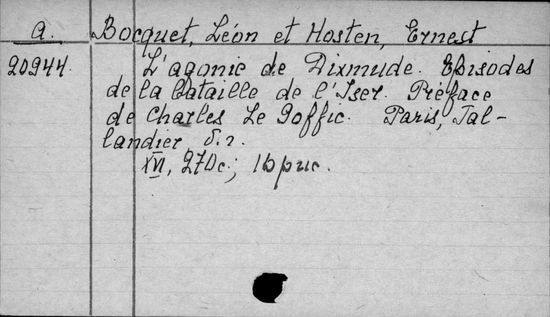 a. Bocquet, Léon et Hosten, Ernest
20944. L'agonie de Dixmude. Episodes
de la Bataille de l'Iser. Préface
de Charles Le Goffic. Paris, Tal-
landier s. г.
XVI, 270 с.; 16 рис.